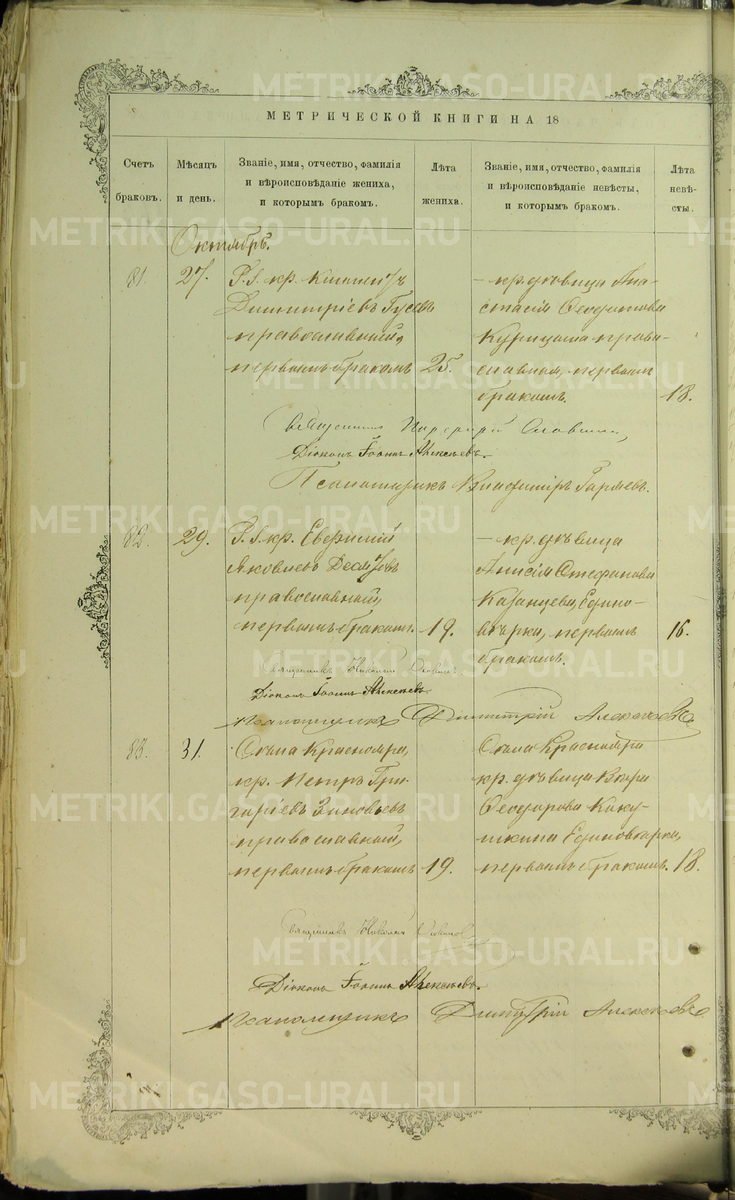 METRIKI.GASO-URAL.RU METRIKI.GASO-URAL.RU
МЕТРИЧЕСКОЙ КНИГИ НА 18
Счетъ браковъ.
Мѣсяцъ и день.
Званіе, имя, отчество, фамилія
и вѣроисповѣданіе жениха,
и которымъ бракомъ.
Лѣта
жениха.
Званіе, имя, отчество, фамилія
и вѣроисповѣданіе невѣсты,
и которымъ бракомъ.
Лѣта
невѣ-
сты.
Октябрь.
81. 27.
кр.
Димитріевъ Гусевъ
православный,
первымъ бракомъ 25.
– кр. дѣвица Ана-
стасія Ѳеодотова
Курицына право-
славная, первымъ
бракомъ. 18.
Діаконъ Іоаннъ Алексѣевъ.
Псаломщикъ Владиміръ Гаряевъ.
82. 29.
кр. Евфимій
Яковлевъ
православный,
первымъ бракомъ. 19.
– кр. дѣвица
Анисія Стефанова
Казанцева, Едино-
вѣрка, первымъ
бракомъ. 16.
Священникъ Николай
Діаконъ Іоаннъ Алексѣевъ.
Псаломщикъ Димитрій Алексѣевъ
83. 31.
Села Краснояра,
кр. Петръ Гри-
горіевъ Зиновьевъ
православный,
первымъ бракомъ 19.
Села Краснояра
кр. дѣвица Вѣра
Ѳеодорова Каку-
шкина Единовѣрка,
первымъ бракомъ. 18.
Священникъ Николай
Діаконъ Іоаннъ Алексѣевъ.
Псаломщикъ Димитрій Алексѣевъ